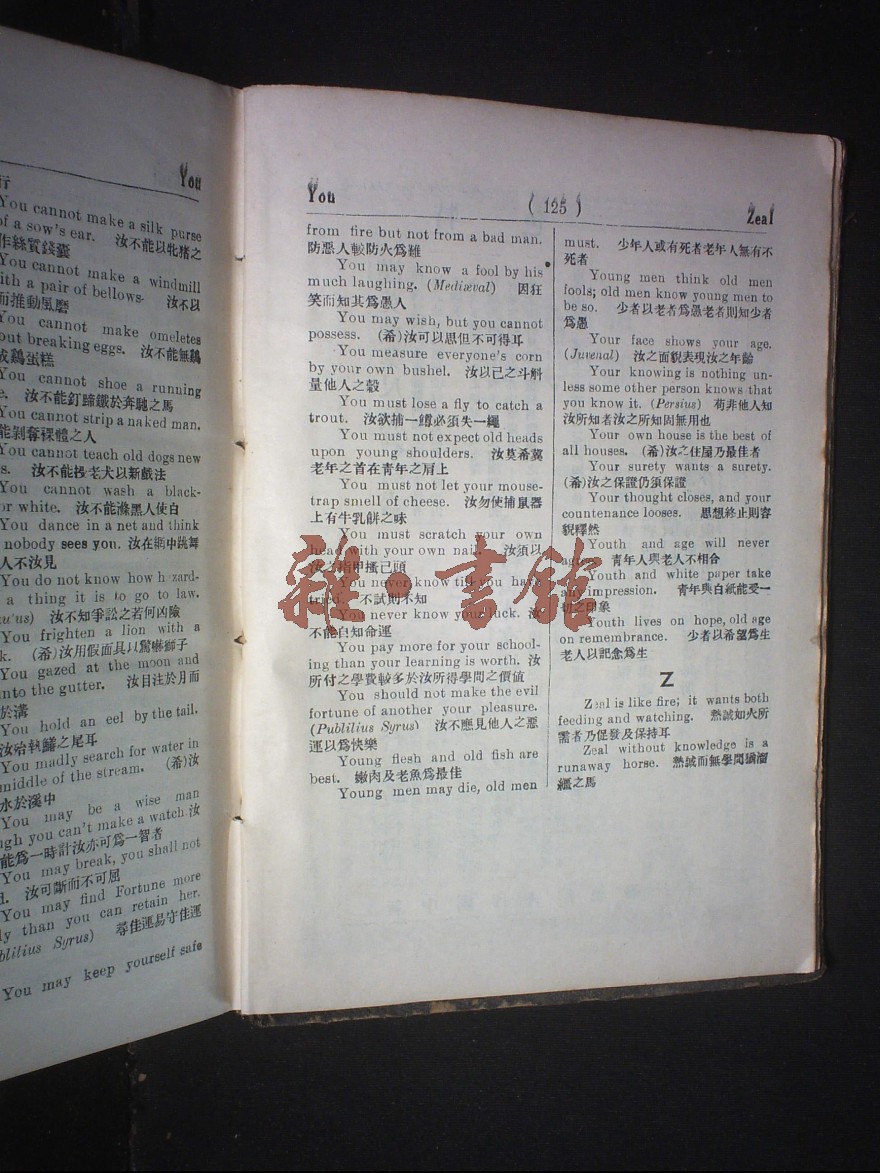 行
You
You cannot make a silk purse
of a sow's ear. 汝不能以牝猪之
作絲質錢囊
You cannot make a windmill
with a pair of bellows. 汝不以
而推動風磨
You cannot make omeletes
out breaking eggs. 汝不能無鷄
成鷄蛋糕
You cannot shoe a running
汝不能釘蹄鐵於奔馳之馬
You cannot strip a naked man.
能剝奪裸體之人
You cannot teach old dogs new
s. 汝不能授老犬以新戲法
You cannot wash a black-
or white. 汝不能滌黑人使白
You dance in a net and think
nobody sees you. 汝在網中跳舞
人不汝見
You do not know how h zard-
a thing it is to go to law.
汝不知爭訟之若何凶險
You frighten a lion with a
k. (希)汝用假面具以驚嚇獅子
You gazed at the moon and
into the gutter. 汝目注於月而
於溝
You hold an eel by the tail.
汝殆執鱔之尾耳
You madly search for water in
middle of the stream. (希)汝
水於溪中
You may be a wise man
ugh you can't make a watch. 汝
能爲一時計汝亦可爲一智者
You may break, you shall not
d. 汝可斷而不可屈
You may find Fortune more
ly than you can retain her.
blilius Syrus) 尋佳運易守佳運
You may keep yourself safe
You
( 125 )
Zeal
from fire but not from a bad man.
防惡人較防火爲難
You may know a fool by his
much laughing. (Mediæval) 因狂
笑而知其爲愚人
You may wish, but you cannot
possess. (希)汝可以思但不可得耳
You measure everyone's corn
by your own bushel. 汝以己之斗斛
量他人之穀
You must lose a fly to catch a
trout. 汝欲捕一鱒必須失一蠅
You must not expect old heads
upon young shoulders. 汝莫希冀
老年之首在青年之肩上
You must not let your mouse-
trap smell of cheese. 汝勿使捕鼠器
上有牛乳餅之味
You must scratch your own
head with your own nail. 汝須以
汝之指甲搔己頭
You never know till you have
tried. 不試則不知
You never know your luck. 汝
不能自知命運
You pay more for your school-
ing than your learning is worth. 汝
所付之學費較多於汝所得學問之價値
You should not make the evil
fortune of another your pleasure.
(Publilius Syrus) 汝不應見他人之惡
運以爲快樂
Young flesh and old fish are
best. 嫩肉及老魚爲最佳
Young men may die, old men
must. 少年人或有死者老年人無有不
死者
Young men think old men
fools; old men know young men to
be so. 少者以老者爲愚老者則知少者
爲愚
Your face shows your age.
(Juvenal) 汝之面貌表現汝之年齡
Your knowing is nothing un-
less some other person knows that
you know it. (Persius) 苟非他人知
汝所知者汝之所知固無用也
Your own house is the best of
all houses. (希)汝之住屋乃最佳者
Your surety wants a surety.
(希)汝之保證仍須保證
Your thought closes, and your
countenance looses. 思想終止則容
貌釋然
Youth and age will never
agree. 青年人與老人不相合
Youth and white paper take
any impression. 青年與白紙能受一
切之印象
Youth lives on hope, old age
on remembrance. 少者以希望爲生
老人以記念爲生
Z
Zeal is like fire; it wants both
feeding and watching. 熱誠如火所
需者乃促發及保持耳
Zeal without knowledge is a
runaway horse. 熱誠而無學問猶溜
繮之馬
雜·書館